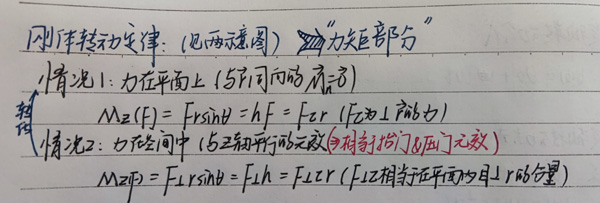 刚体转动定律：(见两示意图) ⇒"力矩部分"
情况1：力在平面上 (与r同向的
Mz(F) = Frsinθ = hF = Fτr (Fτ为⊥r的力)
转化
情况2：力在空间中 (与Z轴平行的无效(→相当于抬门&压门无效)
Mz(F) = F⊥rsinθ = F⊥h = F⊥τr (F⊥τ相当于在平面内且⊥r的分量)